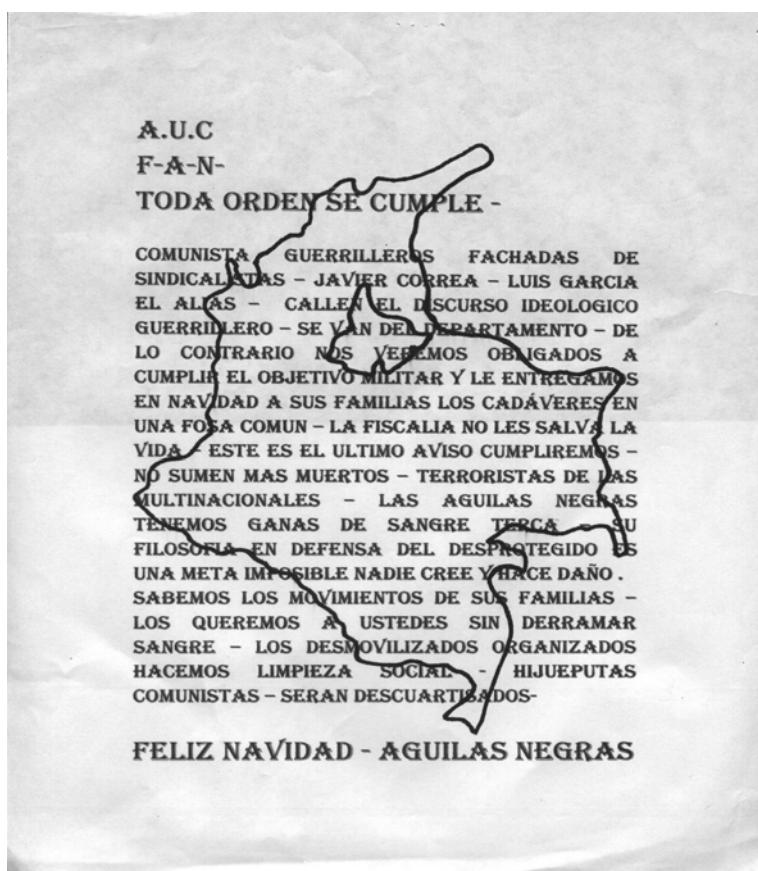 A.U.C
F-A-N-
TODA ORDEN SE CUMPLE -
COMUNISTA GUERRILLEROS FACHADAS DE
SINDICALISTAS – JAVIER CORREA – LUIS GARCIA
EL ALIAS – CALLEN EL DISCURSO IDEOLOGICO
GUERRILLERO – SE VAN DEL DEPARTAMENTO – DE
LO CONTRARIO NOS VEREMOS OBLIGADOS A
CUMPLIR EL OBJETIVO MILITAR Y LE ENTREGAMOS
EN NAVIDAD A SUS FAMILIAS LOS CADÁVERES EN
UNA FOSA COMUN – LA FISCALIA NO LES SALVA LA
VIDA – ESTE ES EL ULTIMO AVISO CUMPLIREMOS –
NO SUMEN MAS MUERTOS – TERRORISTAS DE LAS
MULTINACIONALES – LAS AGUILAS NEGRAS
TENEMOS GANAS DE SANGRE TERCA – SU
FILOSOFIA EN DEFENSA DEL DESPROTEGIDO ES
UNA META IMPOSIBLE NADIE CREE Y HACE DAÑO .
SABEMOS LOS MOVIMIENTOS DE SUS FAMILIAS –
LOS QUEREMOS A USTEDES SIN DERRAMAR
SANGRE – LOS DESMOVILIZADOS ORGANIZADOS
HACEMOS LIMPIEZA SOCIAL - HIJUEPUTAS
COMUNISTAS – SERAN DESCUARTISADOS-
FELIZ NAVIDAD - AGUILAS NEGRAS